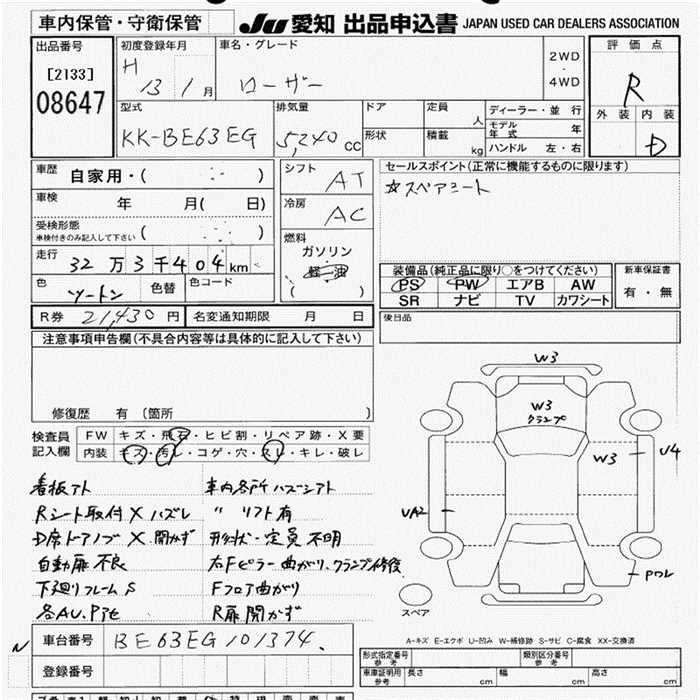 車内保管・守衛保管
JU 愛知 出品申込書 JAPAN USED CAR DEALERS ASSOCIATION
出品番号
[2133]
08647
初度登録年月
H 13 / 1 月
車名・グレード
ローザー
2WD
・
4WD
評価点
R
外装 内装
D
型式
KK-BE63EG
排気量
5,240 cc
ドア
形状
定員 人
積載 kg
ディーラー・並行
モデル年式 年
ハンドル 左・右
車歴 自家用・( )
車検 年 月( 日)
受検形態
車検付きのみ記入して下さい ( )
走行 32万3千404km
色 ツートン 色替 色コード
シフト AT
冷房 AC
燃料
ガソリン
軽油
( )
セールスポイント(正常に機能するものに限ります)
☆スペアシート
装備品(純正品に限り○をつけてください)
PS PW エアB AW
SR ナビ TV カワシート
新車保証書
有・無
R券 21,430円 名変通知期限 月 日
後日品
注意事項申告欄(不具合内容等は具体的に記入して下さい)
修復歴 有 (箇所 )
検査員
記入欄
FW キズ・飛石・ヒビ割・リペア跡・X要
内装 キズ・汚レ・コゲ・穴・スレ・キレ・破レ
看板アト
Rシート取付X ハズレ
D席ドアノブX 開かず
自動扉不良
下廻りフレームS
各AU.Pアセ
車内各所ハズシアト
〃 リフト有
形状・定員不明
右Fピラー曲がり、クランプ修復
Fフロア曲がり
R扉開かず
W3
W3
クランプ
W3
U4
UA2
スペア
A-キズ E-エクボ U-凹み W-補修跡 S-サビ C-腐食 XX-交換済
車台番号 BE63EG101374
登録番号
形式指定番号
参考
類別区分番号
参考
車庫証明用
参考
長さ cm 幅 cm 高さ cm